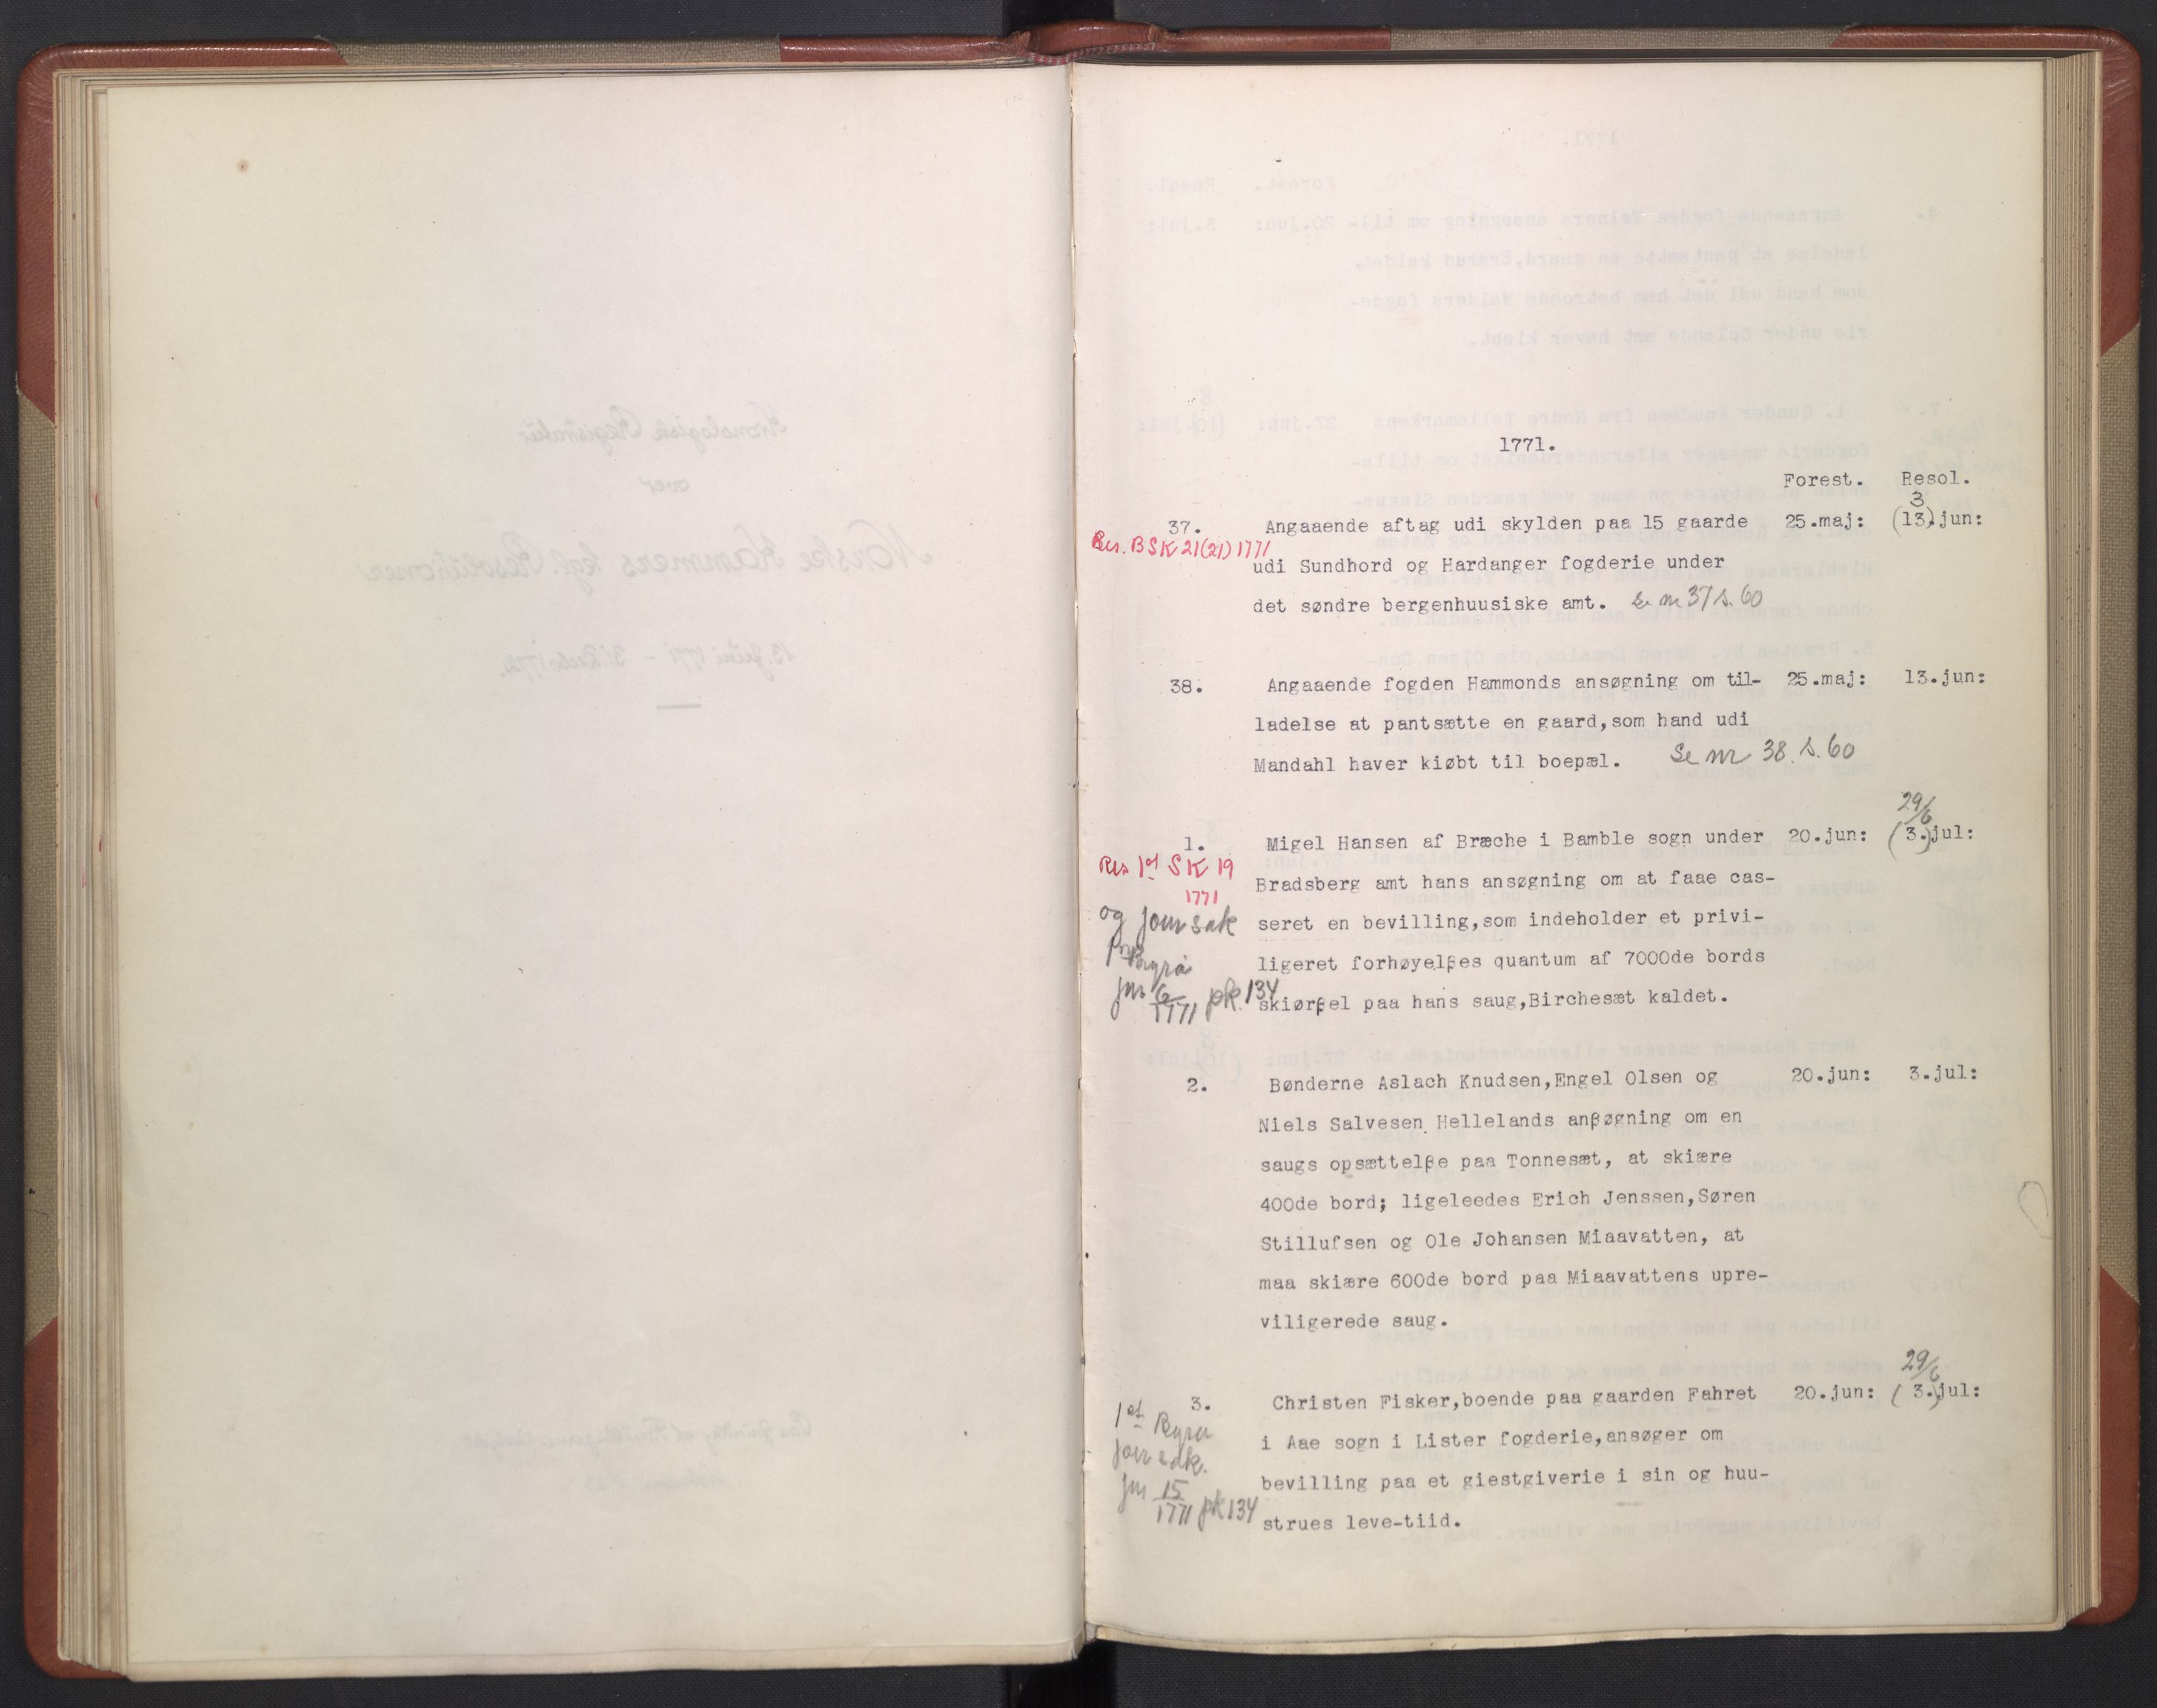 1771.
Forest. Resol.
3
37. Angaaende aftag udi skylden paa 15 gaarde 25.maj: (13.)jun:
Res. BSK 21(21) 1771
udi Sundhord og Hardanger fogderie under
det søndre bergenhuusiske amt. Se nr 37 s. 60
38. Angaaende fogden Hammonds ansøgning om til- 25.maj: 13.jun:
ladelse at pantsætte en gaard,som hand udi
Mandahl haver kiøbt til boepæl. Se nr 38. s. 60
29/6
1. Migel Hansen af Bræche i Bamble sogn under 20.jun: (3.)jul:
Res 1et SK 19
1771
Bradsberg amt hans ansøgning om at faae cas-
og jour sak
seret en bevilling,som indeholder et privi-
1ste Byrå
ligeret forhøyelßes quantum af 7000de bords
jnr 6/1771 pk. 134
skiørßel paa hans saug,Birchesæt kaldet.
2. Bønderne Aslach Knudsen,Engel Olsen og 20.jun: 3.jul:
Niels Salvesen Hellelands anßøgning om en
saugs opsættelße paa Tonnesæt, at skiære
400de bord; ligeleedes Erich Jenssen,Søren
Stillufsen og Ole Johansen Miaavatten, at
maa skiære 600de bord paa Miaavattens upre-
viligerede saug.
29/6
3. Christen Fisker,boende paa gaarden Fahret 20.jun: (3.)jul:
1et Byrå
i Aae sogn i Lister fogderie,ansøger om
jour sak.
bevilling paa et giestgiverie i sin og huu-
jnr 15/1771 pk 134
strues leve-tiid.